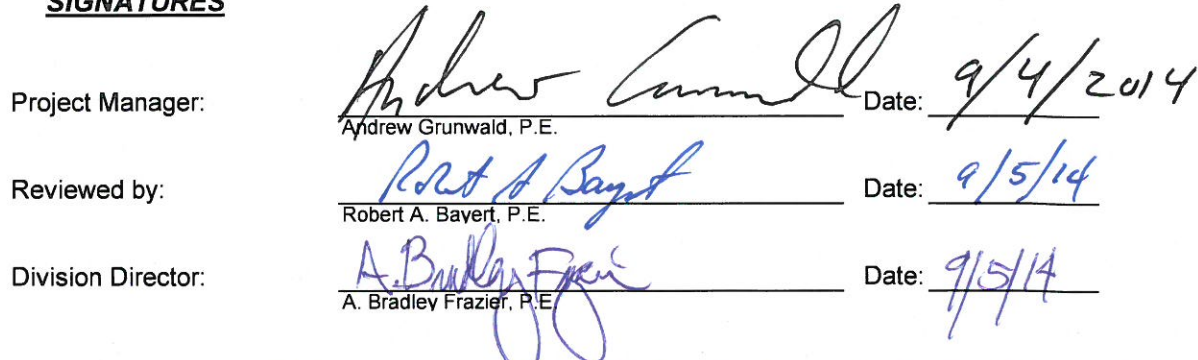 SIGNATURES
Project Manager: Andrew Grunwald Date: 9/4/2014
Andrew Grunwald, P.E.
Reviewed by: Robert A Bayert Date: 9/5/14
Robert A. Bayert, P.E.
Division Director: A. Bradley Frazier Date: 9/5/14
A. Bradley Frazier, P.E.